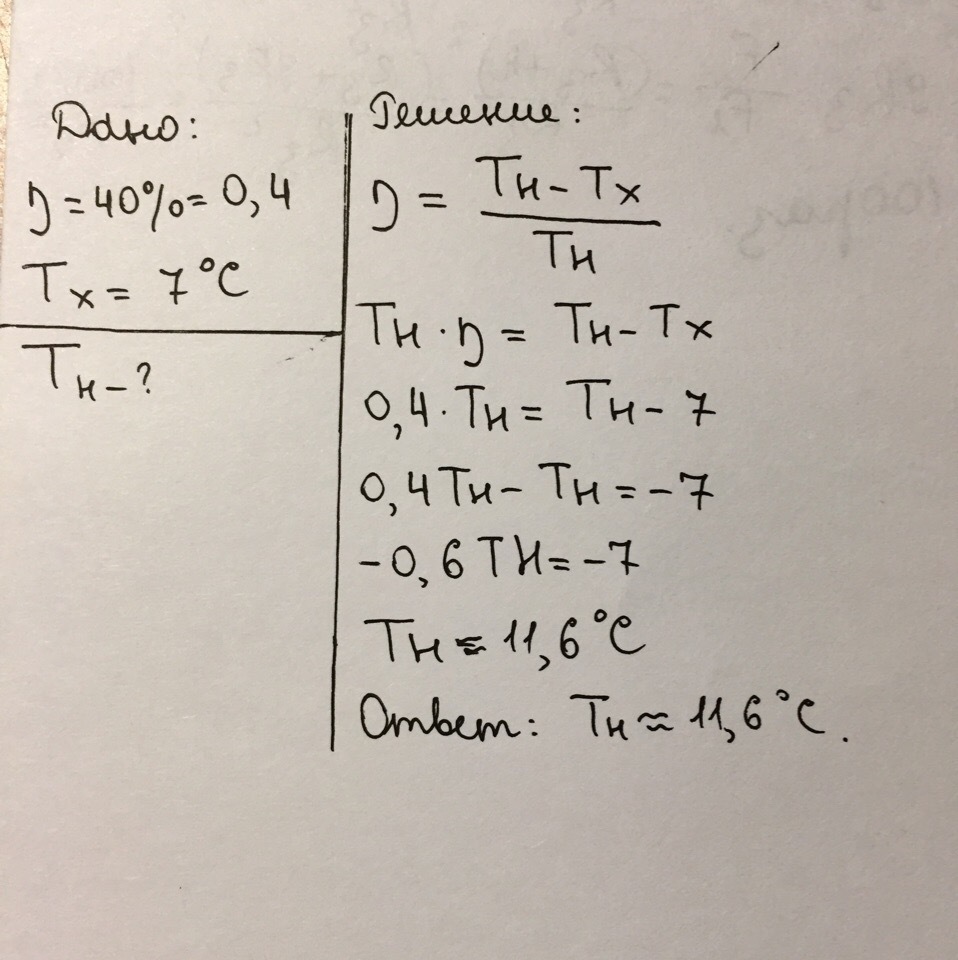 Дано:
η = 40% = 0,4
Tх = 7°C
Tн - ?
Решение:
η = (Tн - Tх) / Tн
Tн · η = Tн - Tх
0,4 · Tн = Tн - 7
0,4 Tн - Tн = -7
-0,6 Tн = -7
Tн ≈ 11,6°C
Ответ: Tн ≈ 11,6°C.